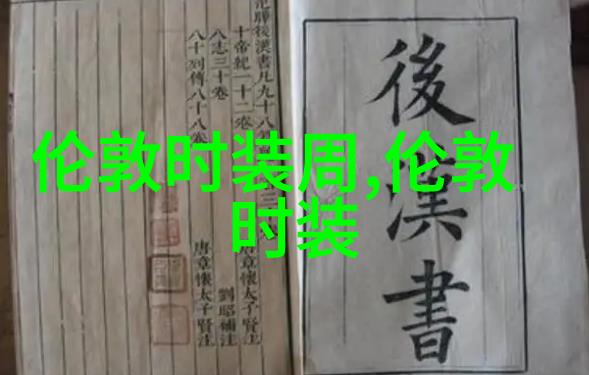 伦敦时装周,伦敦
时装
後漢書
後漢書凡九十八
十帝紀一十二卷 唐章懷太子賢注
八志三十卷 劉昭補注
八十列傳八十八卷 唐章懷太子賢注